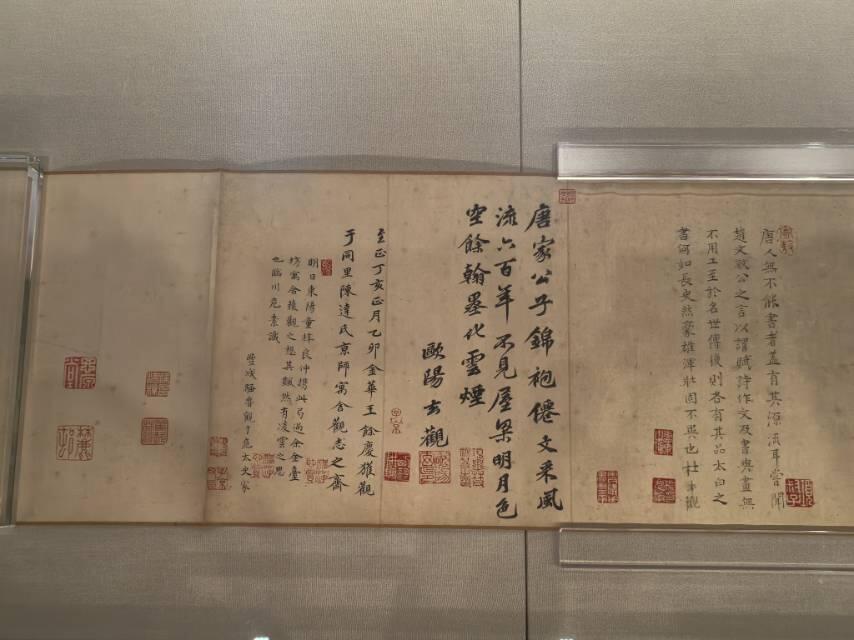 唐人無不能書者蓋有其源流耳嘗聞
趙文敏公之言以謂賦詩作文及書與畫無
不用工至於名世傳後則各有其品太白之
書何如長史然豪雄渾壯固不異也杜本觀
唐家公子錦袍僊文采風
流六百年不見屋梁明月色
空餘翰墨化雲煙
歐陽玄觀
至正丁亥正月乙卯金華王餘慶獲觀
于同里陳達氏京師寓舍觀志之齋
明日東陽童梓良仲携此弓過余金臺
坊寓舍獲觀之想其飄然有凌雲之思
也臨川危素識
豐城騶魯觀于危太史家